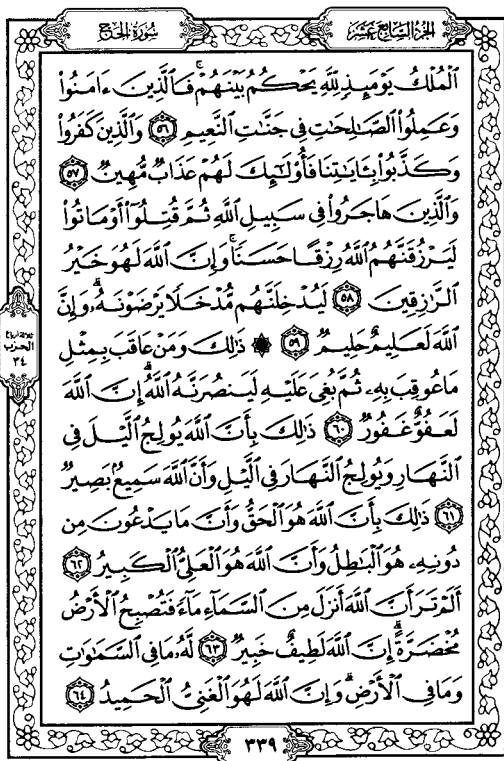 سُورَةُ الحَجِّ
الجُزْءُ السَّابِعَ عَشَرَ
ٱلْمُلْكُ يَوْمَئِذٍ لِّلَّهِ يَحْكُمُ بَيْنَهُمْ ۚ فَٱلَّذِينَ ءَامَنُوا۟
وَعَمِلُوا۟ ٱلصَّـٰلِحَـٰتِ فِى جَنَّـٰتِ ٱلنَّعِيمِ ٥٦ وَٱلَّذِينَ كَفَرُوا۟
وَكَذَّبُوا۟ بِـَٔايَـٰتِنَا فَأُو۟لَـٰٓئِكَ لَهُمْ عَذَابٌ مُّهِينٌ ٥٧
وَٱلَّذِينَ هَاجَرُوا۟ فِى سَبِيلِ ٱللَّهِ ثُمَّ قُتِلُوٓا۟ أَوْ مَاتُوا۟
لَيَرْزُقَنَّهُمُ ٱللَّهُ رِزْقًا حَسَنًا ۚ وَإِنَّ ٱللَّهَ لَهُوَ خَيْرُ
ٱلرَّٰزِقِينَ ٥٨ لَيُدْخِلَنَّهُم مُّدْخَلًا يَرْضَوْنَهُۥ ۗ وَإِنَّ
ٱللَّهَ لَعَلِيمٌ حَلِيمٌ ٥٩ ۞ ذَٰلِكَ وَمَنْ عَاقَبَ بِمِثْلِ
مَا عُوقِبَ بِهِۦ ثُمَّ بُغِىَ عَلَيْهِ لَيَنصُرَنَّهُ ٱللَّهُ ۗ إِنَّ ٱللَّهَ
لَعَفُوٌّ غَفُورٌ ٦٠ ذَٰلِكَ بِأَنَّ ٱللَّهَ يُولِجُ ٱلَّيْلَ فِى
ٱلنَّهَارِ وَيُولِجُ ٱلنَّهَارَ فِى ٱلَّيْلِ وَأَنَّ ٱللَّهَ سَمِيعٌۢ بَصِيرٌ
٦١ ذَٰلِكَ بِأَنَّ ٱللَّهَ هُوَ ٱلْحَقُّ وَأَنَّ مَا يَدْعُونَ مِن
دُونِهِۦ هُوَ ٱلْبَـٰطِلُ وَأَنَّ ٱللَّهَ هُوَ ٱلْعَلِىُّ ٱلْكَبِيرُ ٦٢
أَلَمْ تَرَ أَنَّ ٱللَّهَ أَنزَلَ مِنَ ٱلسَّمَآءِ مَآءً فَتُصْبِحُ ٱلْأَرْضُ
مُخْضَرَّةً ۗ إِنَّ ٱللَّهَ لَطِيفٌ خَبِيرٌ ٦٣ لَّهُۥ مَا فِى ٱلسَّمَـٰوَٰتِ
وَمَا فِى ٱلْأَرْضِ ۗ وَإِنَّ ٱللَّهَ لَهُوَ ٱلْغَنِىُّ ٱلْحَمِيدُ ٦٤
ثلاثة أرباع
الحزب
٣٤
٣٣٩